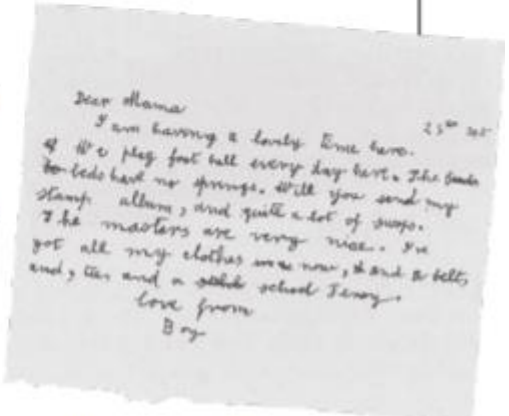 23rd Sept
Dear Mama
I am having a lovely time here.
We play foot ball every day here. The beds
have no springs. Will you send my
stamp album, and quite a lot of swops.
The masters are very nice. I've
got all my clothes now, and a belt,
and, ties and a school Jersey.
love from
Boy